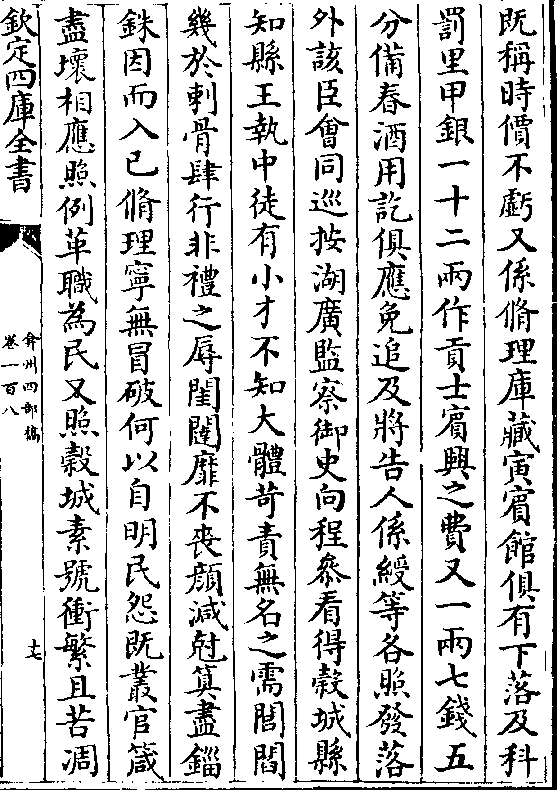 既稱時價不虧又係脩理庫藏寅賓館俱有下落及科
罰里甲銀一十二兩作貢士賓興之費又一兩七錢五
分備春酒用訖俱應免追及將告人係綬等各照發落
外該臣會同巡按湖廣監察御史向程叅看得榖城縣
知縣王執中徒有小才不知大體苛責無名之需閭閻
幾於剌骨肆行非禮之辱閨闥靡不喪顔減尅筭盡錙
銖因而入已脩理寧無冒破何以自明民怨既叢官箴
盡壞相應照例革職為民又照榖城素號衝繁且苦凋
欽定四庫全書
弇州四部稿
卷一百八
十七